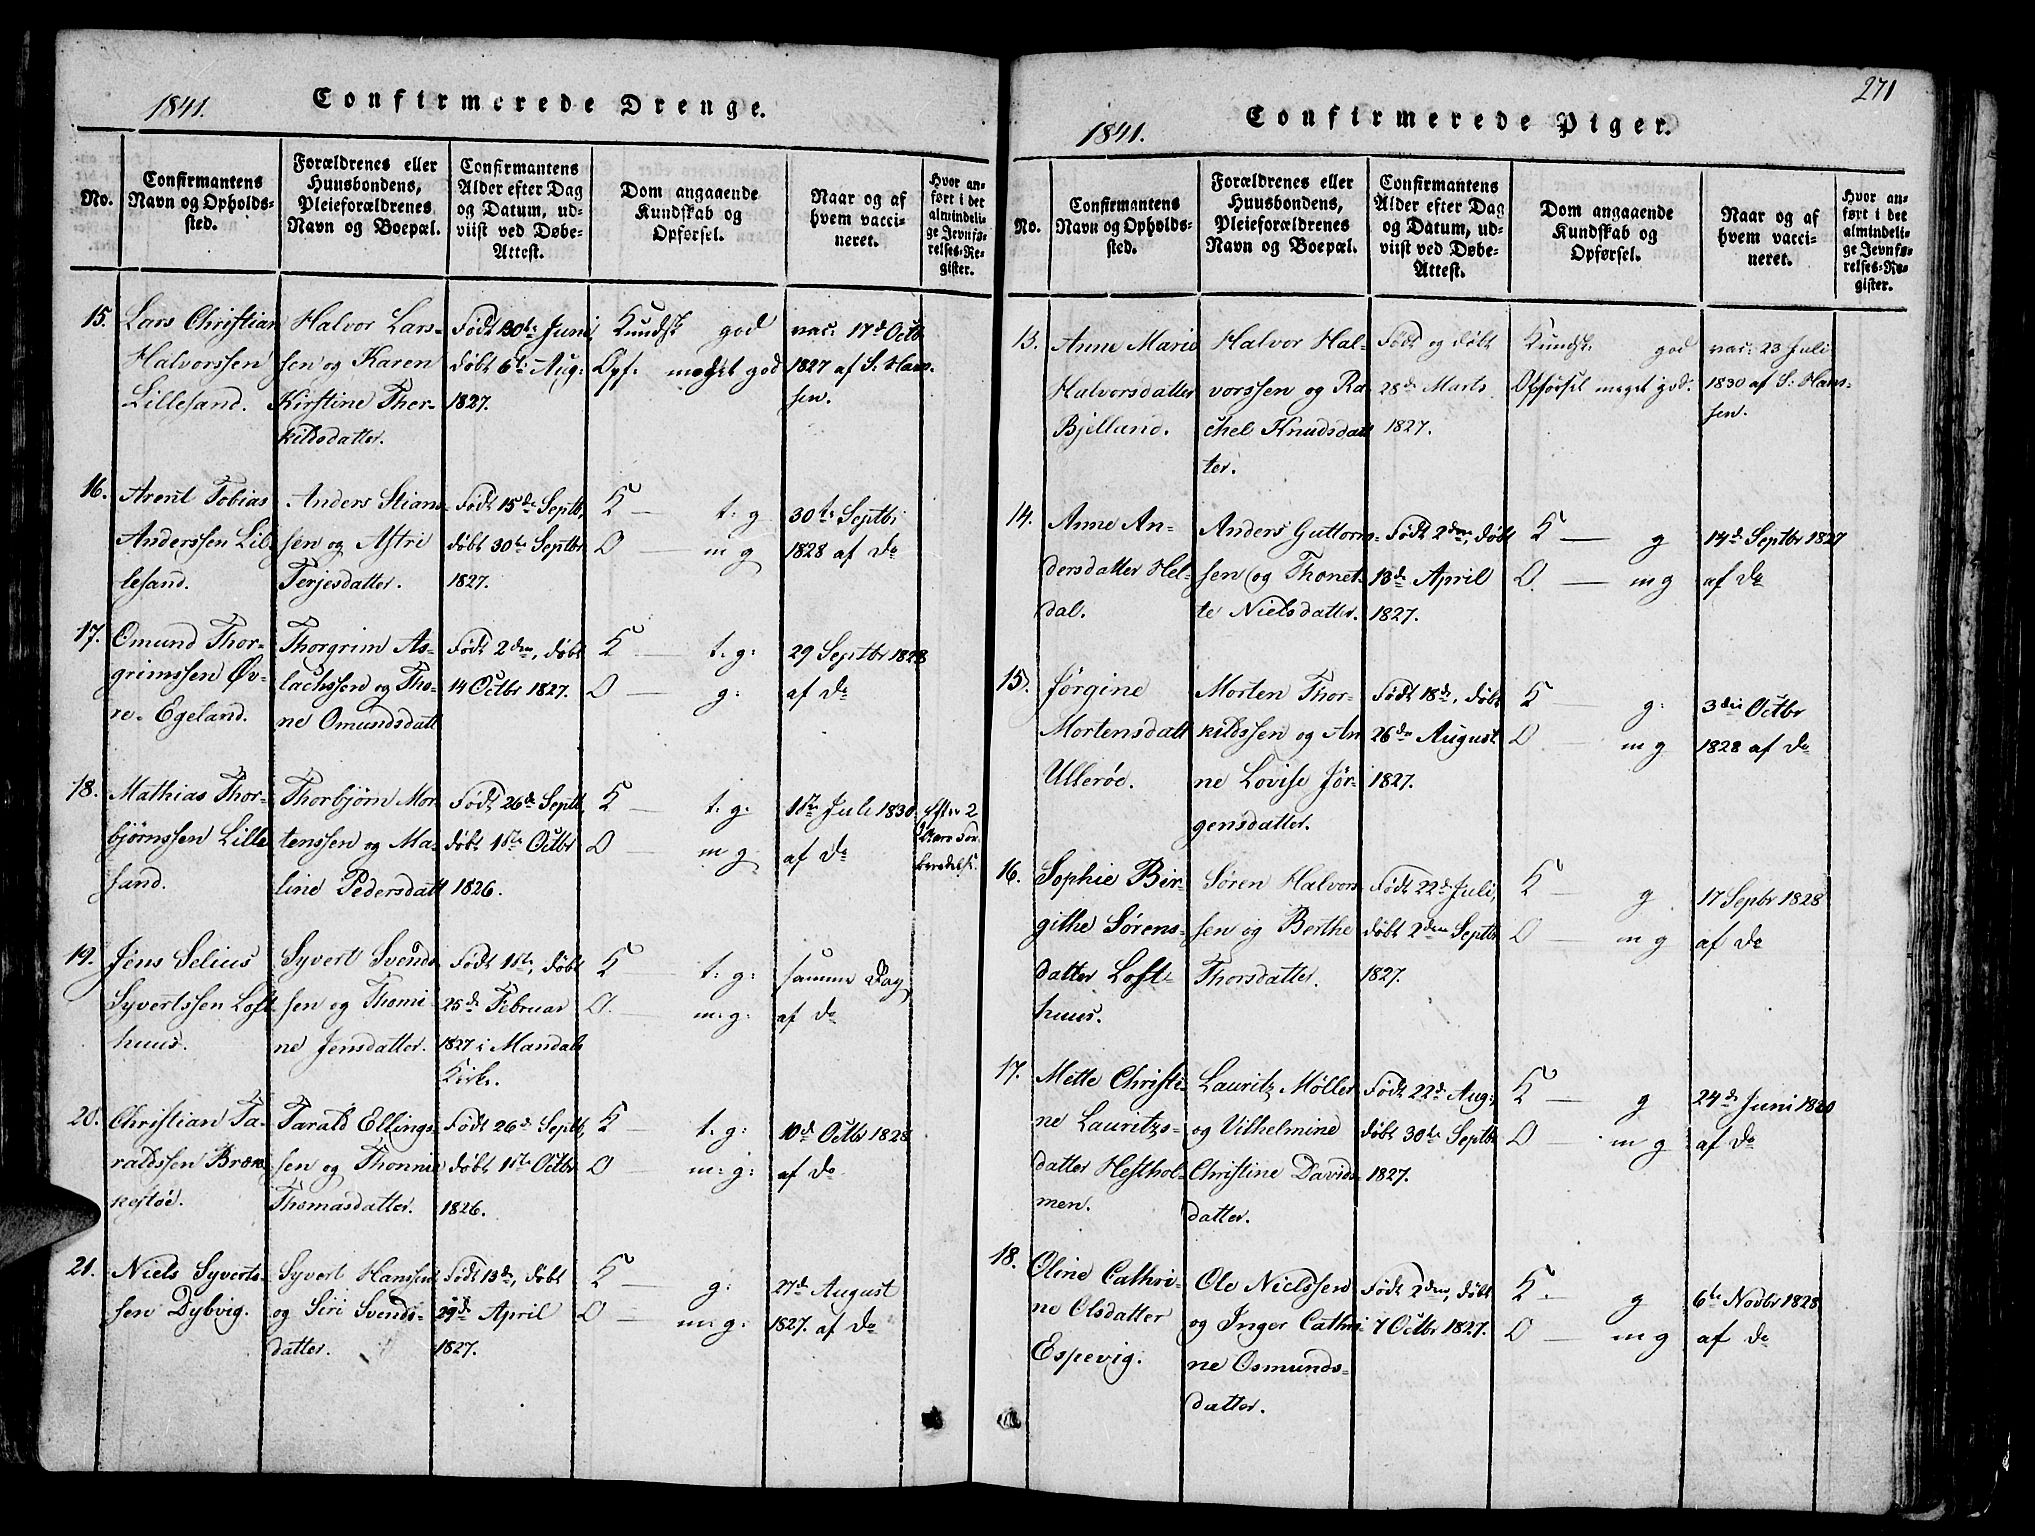 1841.
Confirmerede Drenge.
No.
Confirmantens
Navn og Opholds-
sted.
Forældrenes eller
Huusbondens,
Pleieforældrenes
Navn og Boepæl.
Confirmantens
Alder efter Dag
og Datum, ud-
viist ved Døbe-
Attest.
Dom angaaende
Kundskab og
Opførsel.
Naar og af
hvem vacci-
neret.
Hvor an-
ført i det
almindeli-
ge Jevnfø-
relses-Re-
gister.
15.
Lars Christian
Halvorssen
Lillesand.
Halvor Lars-
sen og Karen
Kirstine Ther-
kildsdatter.
Født 30te Juni,
døbt 6te Aug:
1827.
Kundsk god
Opf: meget god
vac: 17de Octb
1827 af S. Hans-
sen.
16.
Arent Tobias
Anderssen Lil-
lesand.
Anders Stians-
sen og Astri
Terjesdatter.
Født 15de Septb,
døbt 30te Septbr
1827.
K — t: g
O — m g
30te Septbr
1828 af do
17.
Omund Thor-
grimssen Øv-
re. Egeland.
Thorgrim As-
lachssen og Tho-
ne Omundsdatt
Født 2den, døbt
14 Octbr 1827.
K — t: g:
O — g:
29 Septbr 1828
af do
18.
Mathias Thor-
bjørnssen Lille
sand.
Thorbjørn Mor-
tenssen og Ma-
line Pedersdatt
Født 26de Septb,
døbt 1ste Octbr
1826.
K — t: g:
O — m g
1ste Juli 1830
af do
efter 2
Aars For-
beredelse.
19.
Jens Selius
Syvertssen Loft
huus.
Syvert Svends
sen og Thomi
ne Jensdatter.
Født 1ste, døbt
25de Februar
1827 i Mandals
Kirke.
K — t: g:
O. — m: g:
samme Dag
af do
20.
Christian Ta-
raldssen Bræk
kestøe.
Tarald Ellings-
sen og Thonnie
Thomasdatter.
Født 26de Septb,
døbt 1ste Octbr
1826.
K — t: g:
O — m: g:
10de Octbr 1828
af do
21.
Niels Syverts-
sen Dybvig.
Syvert Hanssen
og Siri Svends-
datter.
Født 13de, døbt
29de April
1827.
K — g:
O — m: g:
27de August
1827. af do
271
1841.
Confirmerede Piger.
No.
Confirmantens
Navn og Opholds-
sted.
Forældrenes eller
Huusbondens,
Pleieforældrenes
Navn og Boepæl.
Confirmantens
Alder efter Dag
og Datum, ud-
viist ved Døbe-
Attest.
Dom angaaende
Kundskab og
Opførsel.
Naar og af
hvem vacci-
neret.
Hvor an-
ført i det
almindeli-
ge Jevnfø-
relses-Re-
gister.
13.
Anne Marie
Halvorsdatter
Bjelland.
Halvor Hal-
vorssen og Ra-
chel Knudsdat
ter.
Født og døbt
28de Marts
1827.
Kundsk: god
Opførsel meget god.
vac: 23 Juli
1830 af S. Hans-
sen.
14.
Anne An-
dersdatter Hel-
dal.
Anders Guttorm-
sen og Thonet-
te Nielsdatter.
Født 2den, døbt
13de April
1827.
K — g
O. — m g
14de Septbr 1827
af do
15.
Jørgine
Mortensdatt
Ullerøe.
Morten Thor-
kildssen og An
ne Lovise Jør-
gensdatter.
Født 18de, døbt
26de August
1827.
K — g:
O. — m g
3die Octbr
1828 af do
16.
Sophie Bir-
githe Sørens-
datter Loft-
huus.
Søren Halvors
sen og Berthe
Thorsdatter.
Født 22de Juli,
døbt 2den Septbr
1827.
K — g
O — m g
17 Sepbr 1828
af do
17.
Mette Christi-
ne Lauritzs-
datter Hesthol-
men.
Lauritz Møller
og Vilhelmine
Christine Davids-
datter.
Født 22de Aug:,
døbt 30te Septbr
1827.
K — g
O — m g
24de Juni 1830
af do
18.
Oline Cathri-
ne Olsdatter
Espevig.
Ole Nielssen
og Inger Cathri-
ne Osmunds-
datter.
Født 2den, døbt
7 Octbr 1827.
K. — g
O — m g
6te Novbr 1828
af do